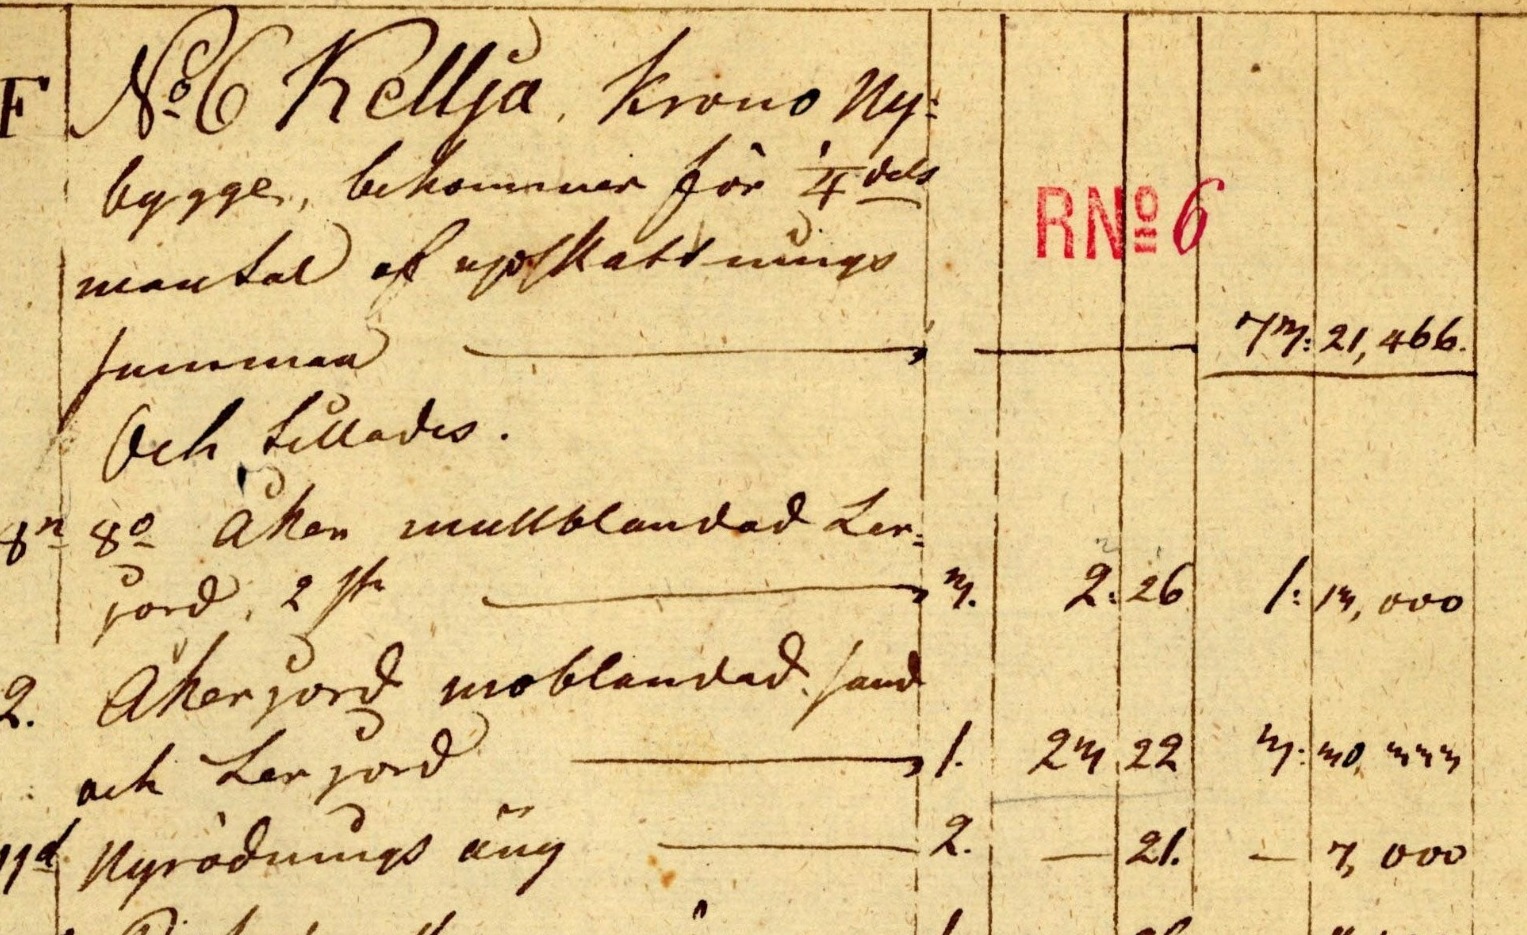 F No 6 Kellja, Krono Ny=
bygge, bekommer för 1/4 dels
mantal af uppskattnings
summan — 73: 21,466.
RNo 6
Och tillades.
8n 8o Åker mullblandad Ler=
jord, 2 st — 3. 2: 26 1: 13,000
2. Åkerjord moblandad sand
och Lerjord — 1. 23 22 3: 30,333
11d Nyrödnings äng — 2. — 21. — 7,000